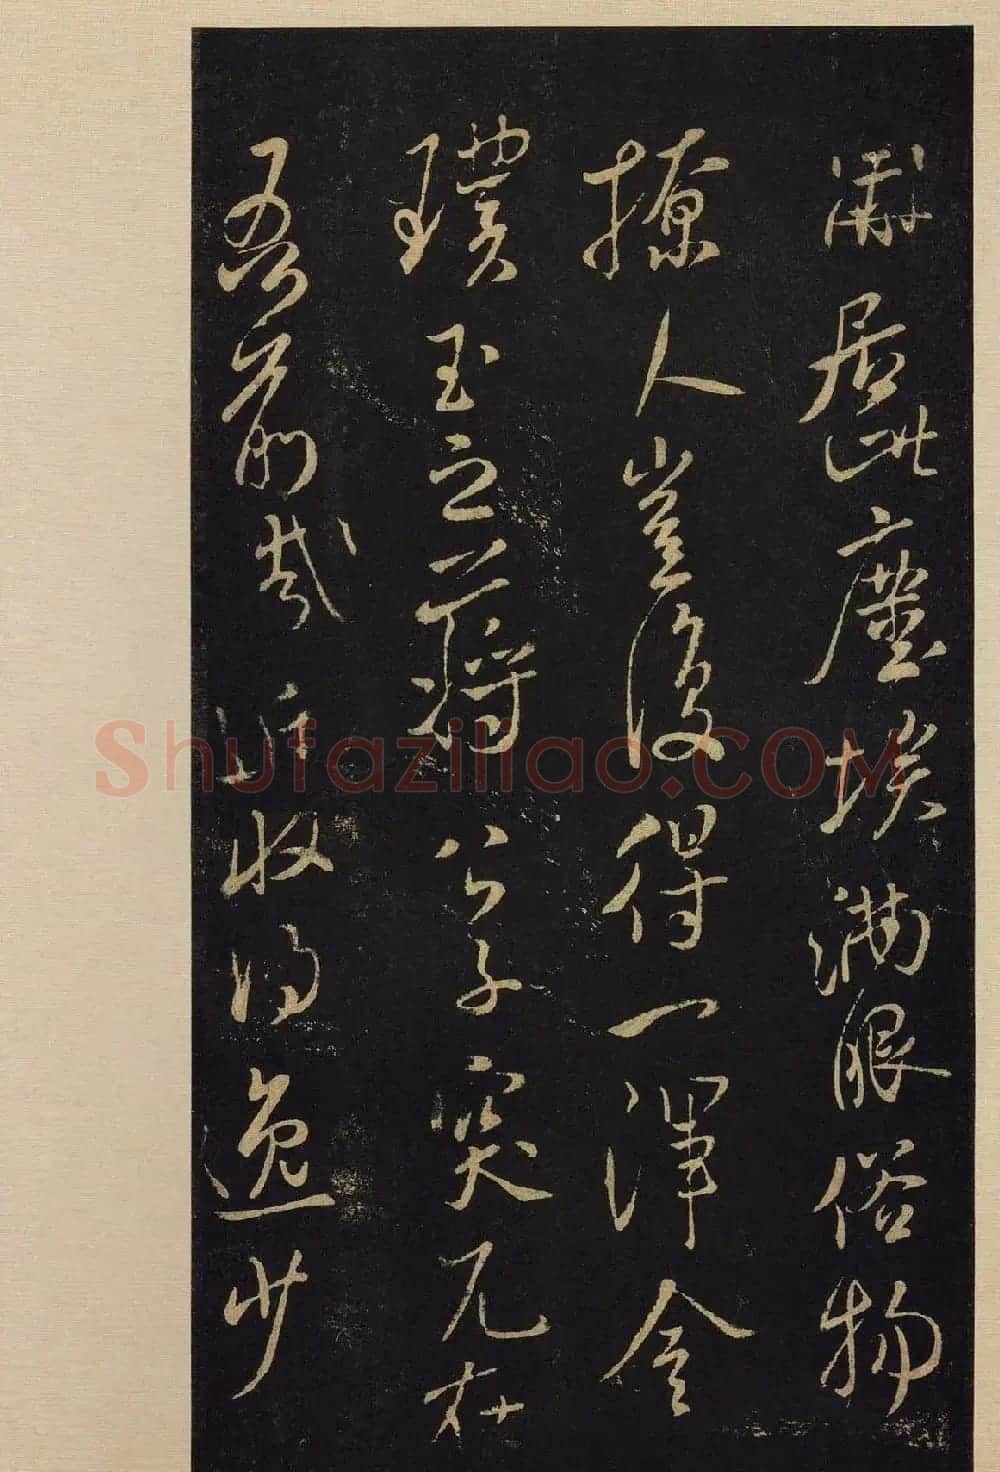 黻居此塵埃滿眼俗物
撩人豈復得一渾金
璞玉之蔣公子突兀在
吾前哉近收得逸少
Shufaziliao.COM